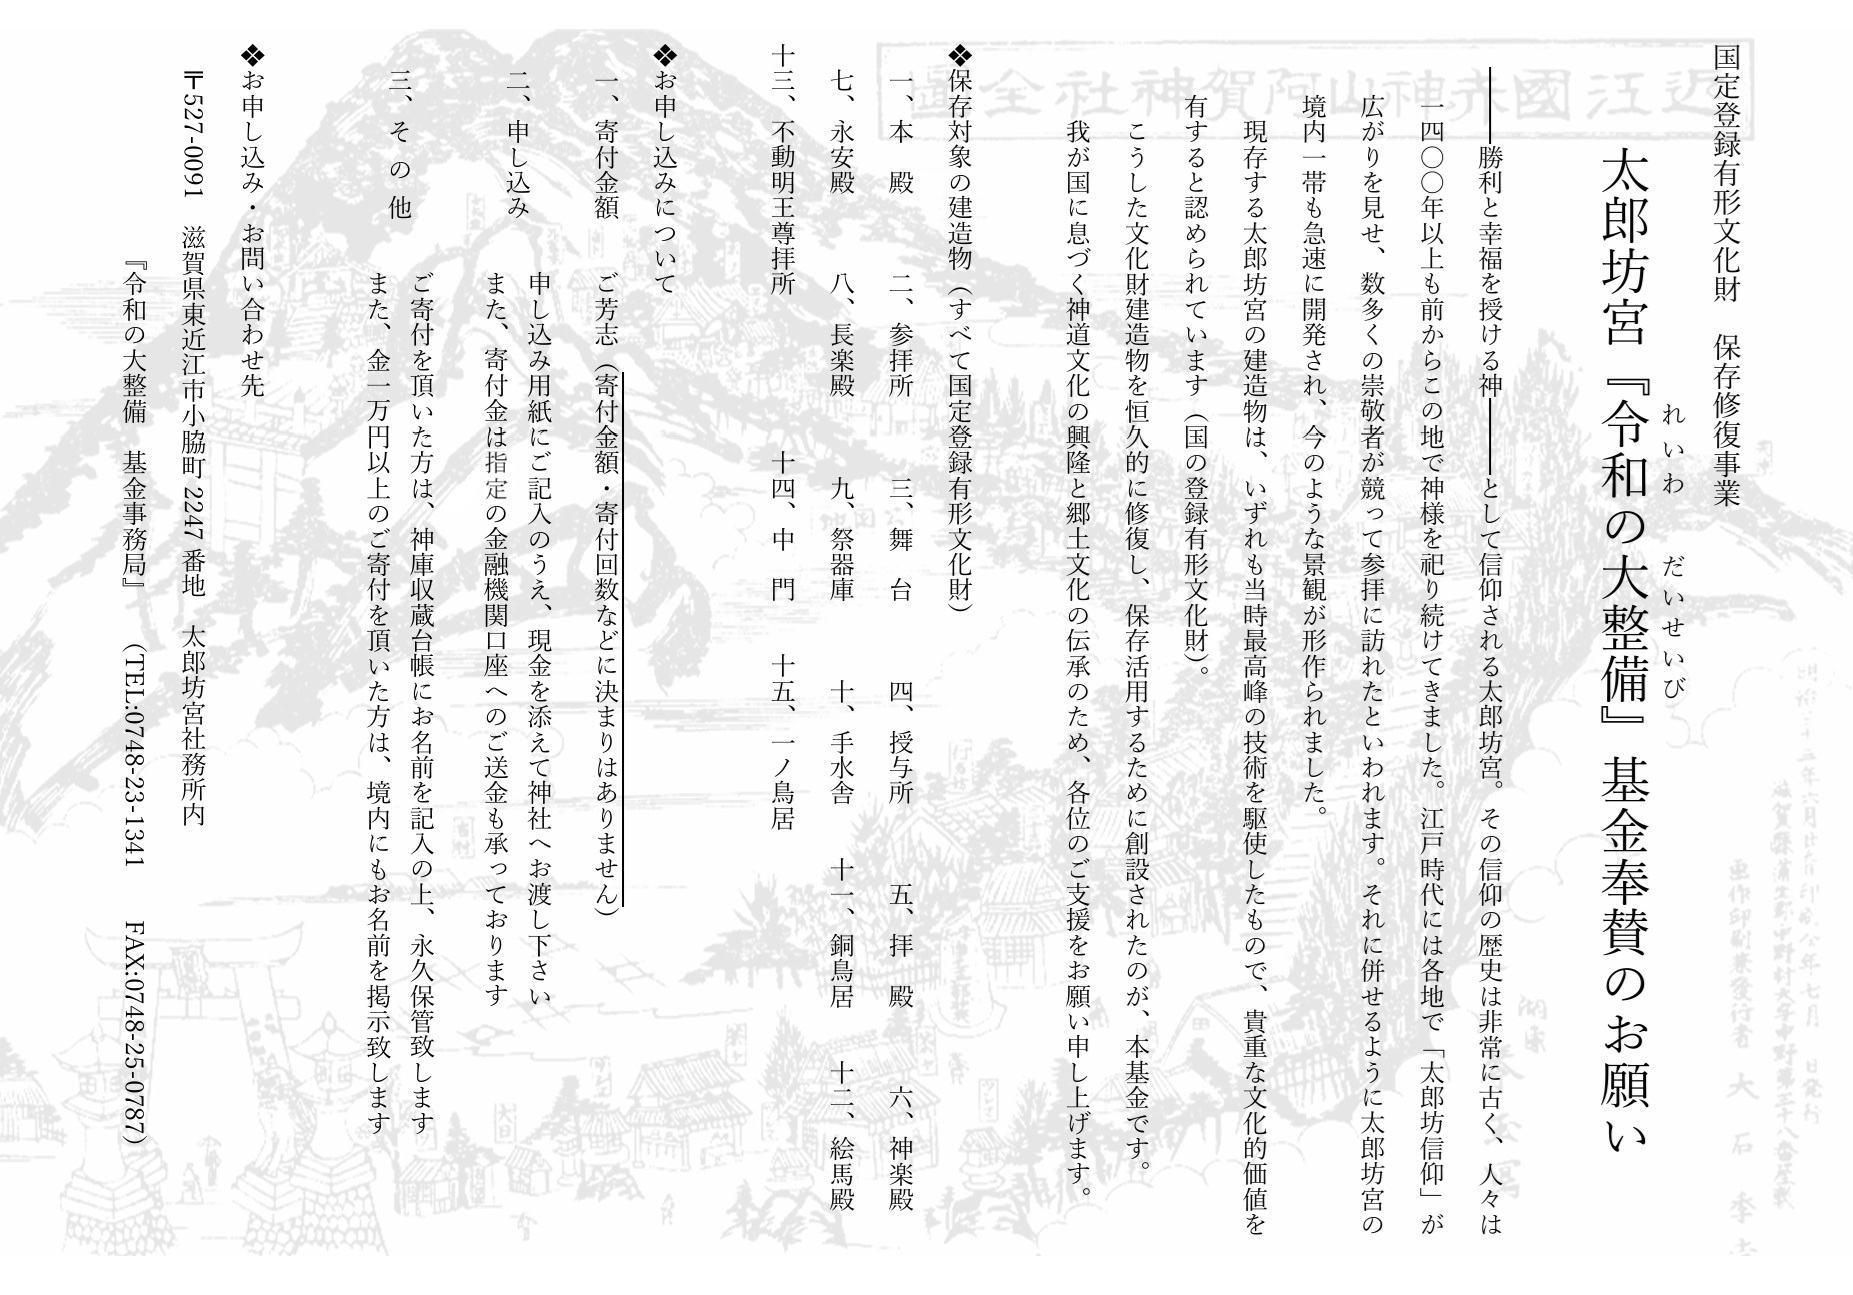 国定登録有形文化財　保存修復事業
れいわ　だいせいび
太郎坊宮『令和の大整備』基金奉賛のお願い
――勝利と幸福を授ける神――として信仰される太郎坊宮。その信仰の歴史は非常に古く、人々は
一四〇〇年以上も前からこの地で神様を祀り続けてきました。江戸時代には各地で「太郎坊信仰」が
広がりを見せ、数多くの崇敬者が競って参拝に訪れたといわれます。それに併せるように太郎坊宮の
境内一帯も急速に開発され、今のような景観が形作られました。
現存する太郎坊宮の建造物は、いずれも当時最高峰の技術を駆使したもので、貴重な文化的価値を
有すると認められています（国の登録有形文化財）。
こうした文化財建造物を恒久的に修復し、保存活用するために創設されたのが、本基金です。
我が国に息づく神道文化の興隆と郷土文化の伝承のため、各位のご支援をお願い申し上げます。
❖保存対象の建造物（すべて国定登録有形文化財）
一、本　殿　二、参拝所　三、舞　台　四、授与所　五、拝　殿　六、神楽殿
七、永安殿　八、長楽殿　九、祭器庫　十、手水舎　十一、銅鳥居　十二、絵馬殿
十三、不動明王尊拝所　十四、中　門　十五、一ノ鳥居
❖お申し込みについて
一、寄付金額　ご芳志（寄付金額・寄付回数などに決まりはありません）
二、申し込み　申し込み用紙にご記入のうえ、現金を添えて神社へお渡し下さい
また、寄付金は指定の金融機関口座へのご送金も承っております
三、その他　ご寄付を頂いた方は、神庫収蔵台帳にお名前を記入の上、永久保管致します
また、金一万円以上のご寄付を頂いた方は、境内にもお名前を掲示致します
❖お申し込み・お問い合わせ先
〒527-0091　滋賀県東近江市小脇町 2247 番地　太郎坊宮社務所内
『令和の大整備　基金事務局』　（TEL:0748-23-1341　FAX:0748-25-0787）
近江國赤神山阿賀神社全圖